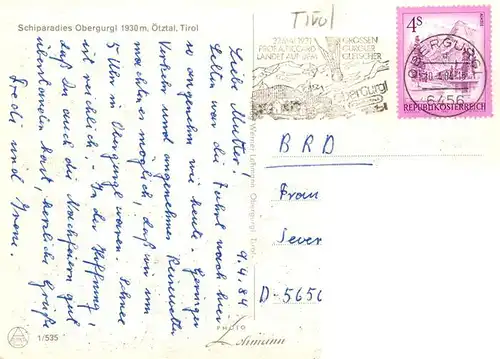 Schiparadies Obergurgl 1930 m, Ötztal, Tirol
9.4.84
Liebe Mutter!
Selten war die Fahrt nach hier
so angenehm wie heute. Geringer
Verkehr und angenehmes Reisewetter
machten es möglich, daß wir um
5 Uhr in Obergurgl waren. Schnee
ist reichlich! – In der Hoffnung
daß Du auch die Nachfeiern gut
überstanden hast, herzliche Grüße
Fredi und Irene.
1/535
PHOTO
Lohmann
Obergurgl, Tirol
Tirol
27. MAI 1931
PROF. A. PICCARD
LANDET AUF DEM
GROSSEN
GURGLER
GLETSCHER
4S
REPUBLIK ÖSTERREICH
OBERGURGL
6456
BRD
Frau
Jever
D-5650